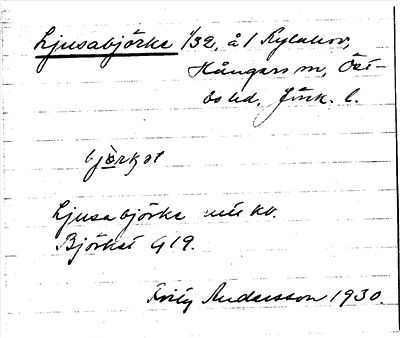 Ljusabjörke 1/32, å 1 Rylahov,
Hångers sn, Öst-
bo hd, Jönk. l.
bjö̀rkat
Ljusabjörke utt kv.
Björkat G19.
Fritz Andersson 1930.